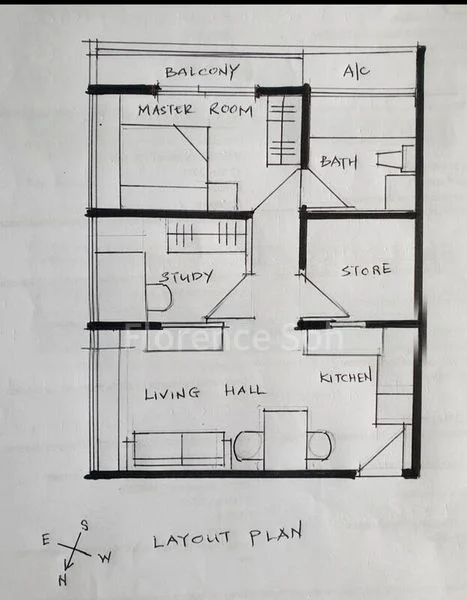 BALCONY
A/C
MASTER ROOM
BATH
STUDY
STORE
Florence Son
KITCHEN
LIVING HALL
S
E
W
N
LAYOUT PLAN